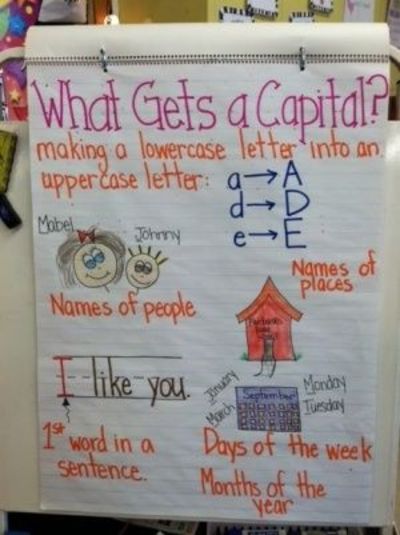 What Gets a Capital?
making a lowercase letter into an
uppercase letter:
a → A
d → D
e → E
Mabel
Johnny
Names of people
Names of
places
I like you.
1st word in a
sentence.
January
March
September
Monday
Tuesday
Days of the week
Months of the
year